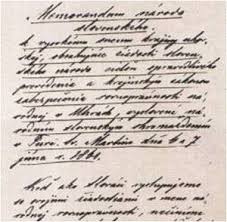 Memorandum národa
slovenského
k vysokému snemu krajiny uhor-
skej, obsahujúce žiadosti sloven-
ského národa cieľom spravodlivého
prevedenia a krajinským zákonom
zabezpečenia rovnoprávnosti ná-
rodnej v Uhrách, vystavené ná-
rodným slovenským shromaždením
v Turč. sv. Martine dňa 6 a 7
júna r. 1861.
Keď ako Slováci vystupujeme
so svojimi žiadosťami v mene ná-
rodnej rovnoprávnosti,